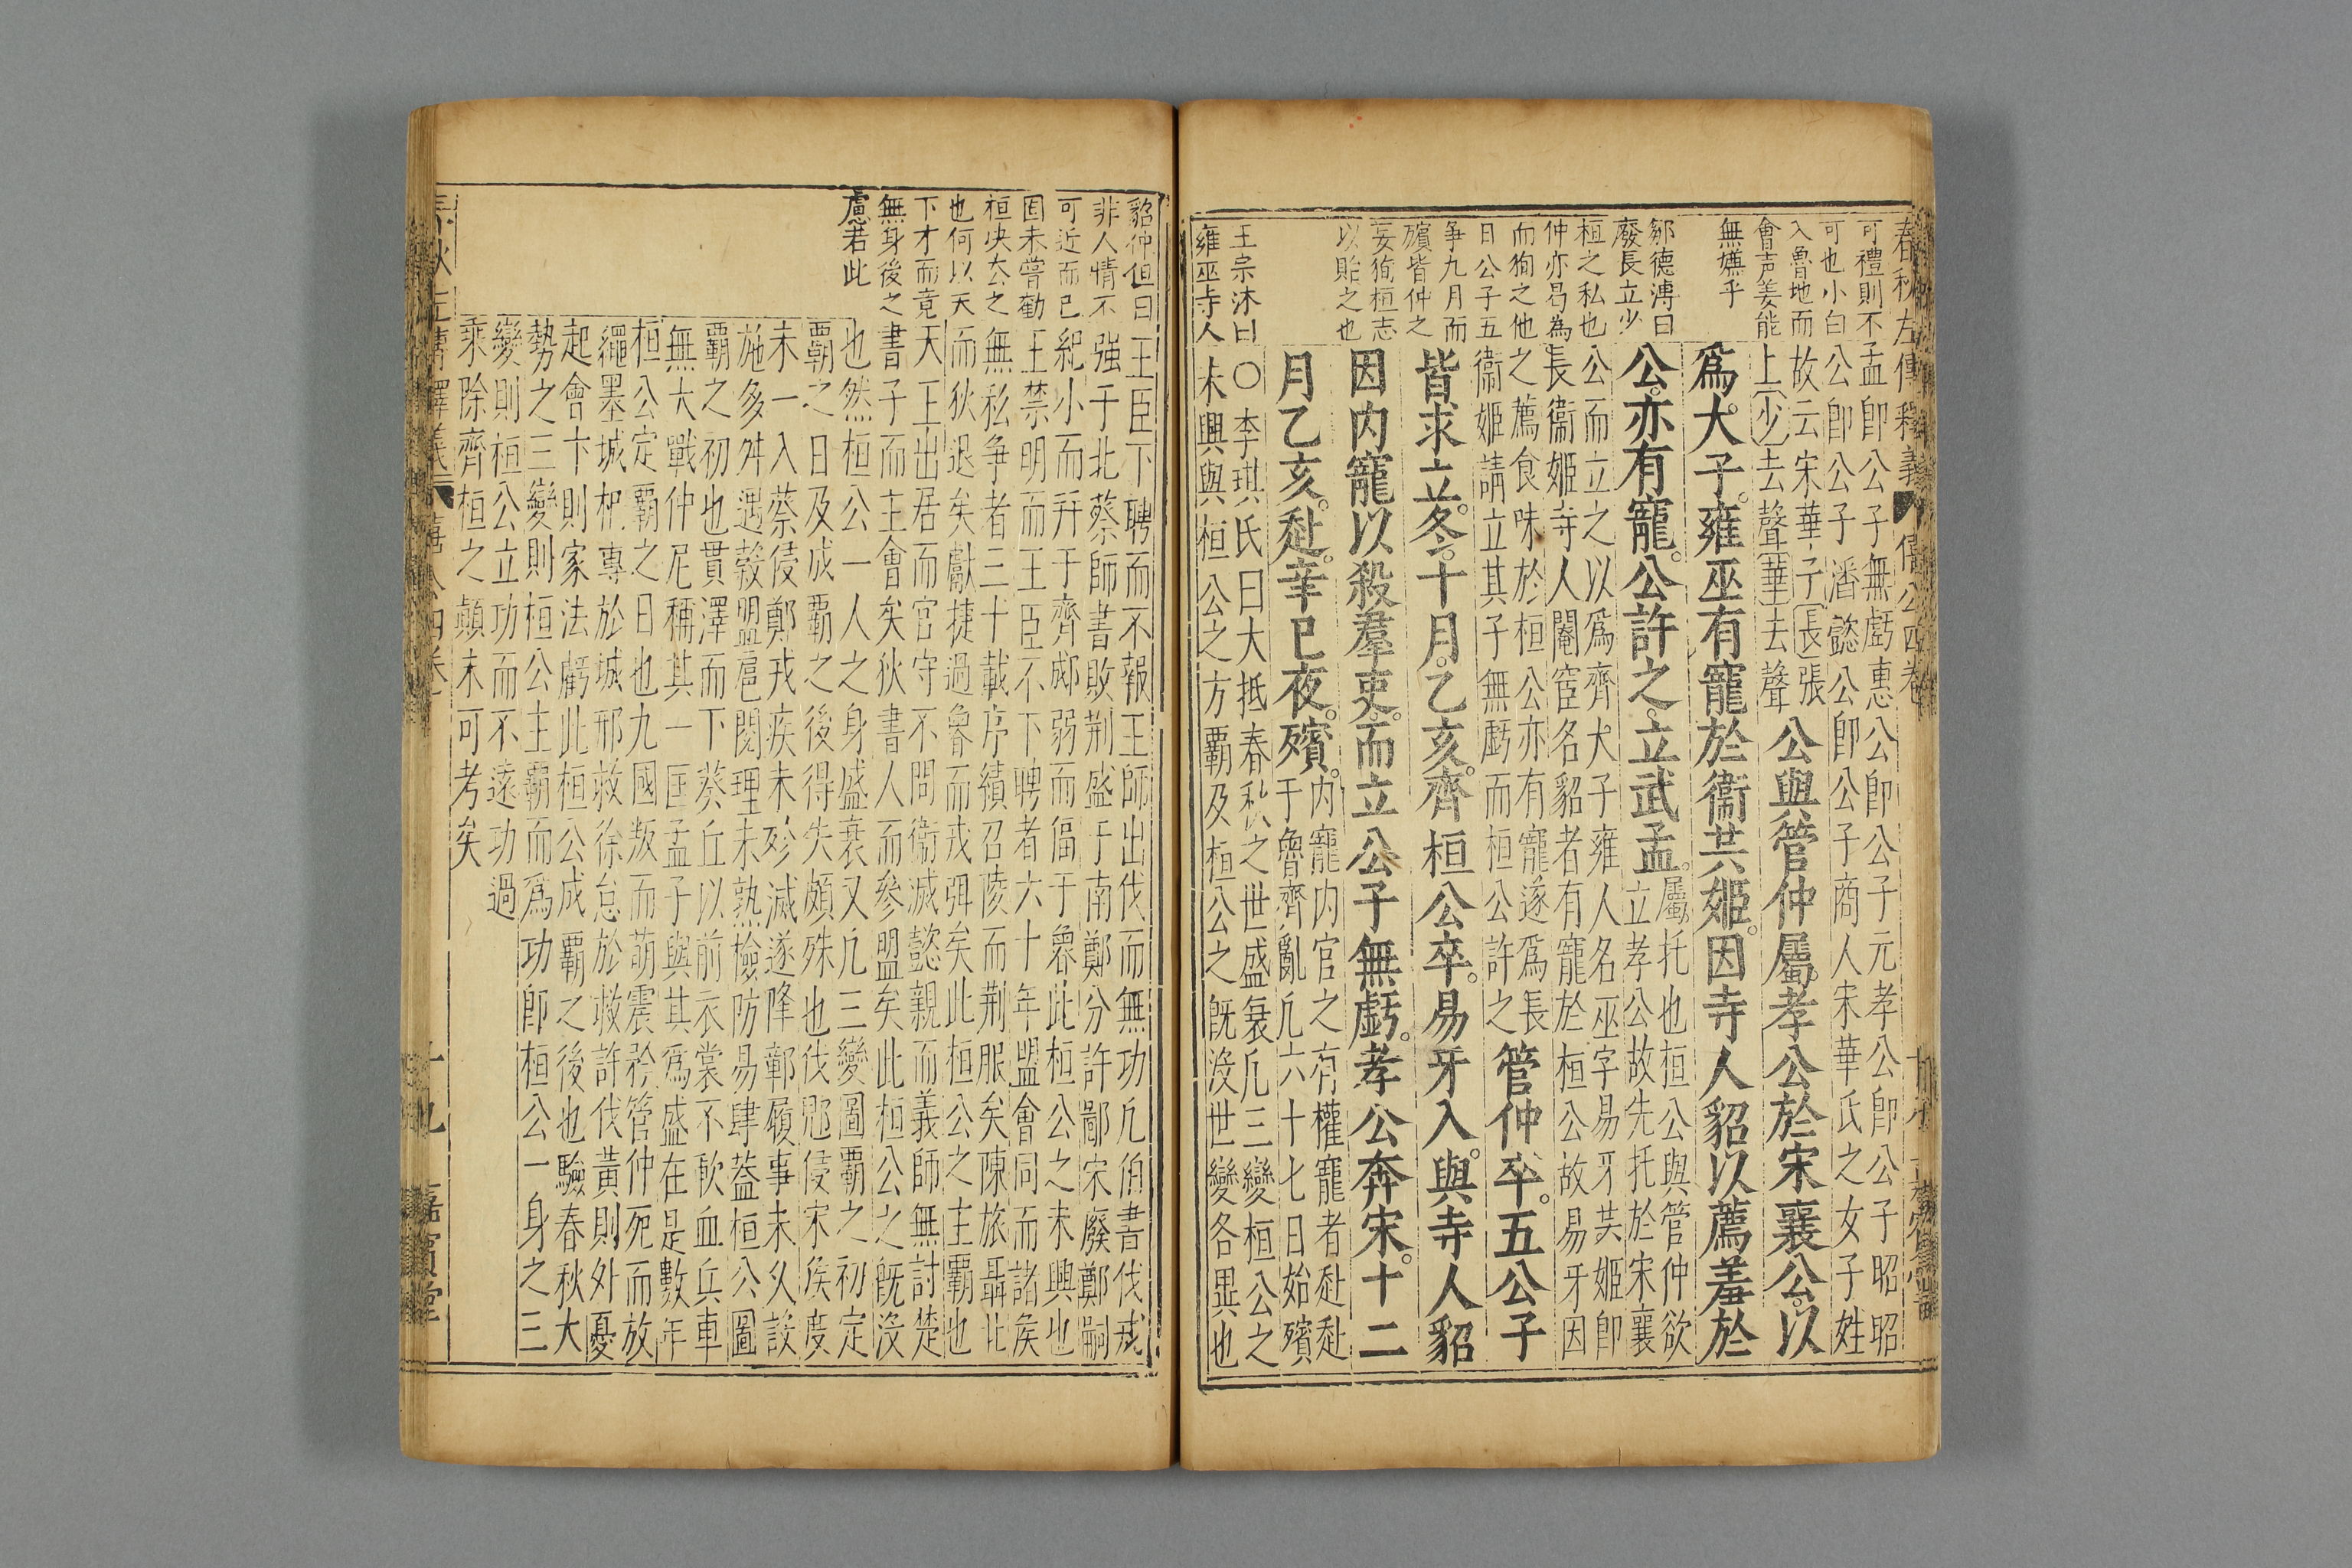 春秋左傳釋義 僖公四卷
可禮則不
可也小白
入魯地而
會声姜能
無嫌乎
鄒德溥曰
廢長立少
桓之私也
仲亦曷為
而狥之他
日公子五
争九月而
殯皆仲之
妄狥桓志
以貽之也
王宗沐曰
雍巫寺人
孟卽公子無虧惠公卽公子元孝公卽公子昭昭
公卽公子潘懿公卽公子商人宋華氏之女子姓
故云宋華子長張
上少去聲華去聲
公與管仲屬孝公於宋襄公以
爲大子雍巫有寵於衞共姬因寺人貂以薦羞於
公亦有寵公許之立武孟
屬托也桓公與管仲欲
立孝公故先托於宋襄
公而立之以爲齊大子雍人名巫字易牙共姬卽
長衞姬寺人閹宦名貂者有寵於桓公故易牙因
之薦食味於桓公亦有寵遂爲長
衞姬請立其子無虧而桓公許之
管仲卒五公子
皆求立冬十月乙亥齊桓公卒易牙入與寺人貂
因内寵以殺羣吏而立公子無虧孝公奔宋十二
月乙亥赴辛巳夜殯
内寵内官之有權寵者赴赴
于魯齊亂凡六十七日始殯
○李琪氏曰大抵春秋之世盛衰凡三變桓公之
未興與桓公之方覇及桓公之旣沒世變各異也
貂仲但曰
非人情不
可近而已
固未嘗勸
桓决去之
也何以天
下才而竟
無身後之
慮若此
王臣下聘而不報王師出伐而無功凡伯書伐戎
强于北蔡師書敗荆盛于南鄭分許鄙宋廢鄭嗣
紀小而幷于齊郕弱而偪于魯此桓公之未興也
王禁明而王臣不下聘者六十年盟會同而諸矦
無私争者三十載序績召陵而荆服矣陳旅聶北
而狄退矣獻捷過魯而戎弭矣此桓公之主覇也
天王出居而官守不問衞滅懿親而義師無討楚
書子而主會矣狄書人而參盟矣此桓公之旣沒
也然桓公一人之身盛衰又凡三變圖覇之初定
覇之日及成覇之後得失頗殊也伐郳侵宋矦度
未一入蔡侵鄭戎疾未殄滅遂降鄣履事未久設
施多舛遇榖盟扈閱理未熟檢防易肆葢桓公圖
覇之初也貫澤而下葵丘以前衣裳不歃血兵車
無大戰仲尼稱其一匡孟子與其爲盛在是數年
桓公定覇之日也九國叛而萌震矜管仲死而放
繩墨城杞專於城邢救徐怠於救許伐黃則外憂
起會卞則家法虧此桓公成覇之後也驗春秋大
勢之三變則桓公主覇而爲功卽桓公一身之三
變則桓公立功而不遠功過
乘除齊桓之顛末可考矣
春秋左傳釋義 僖公四卷 十九 嘉賓堂